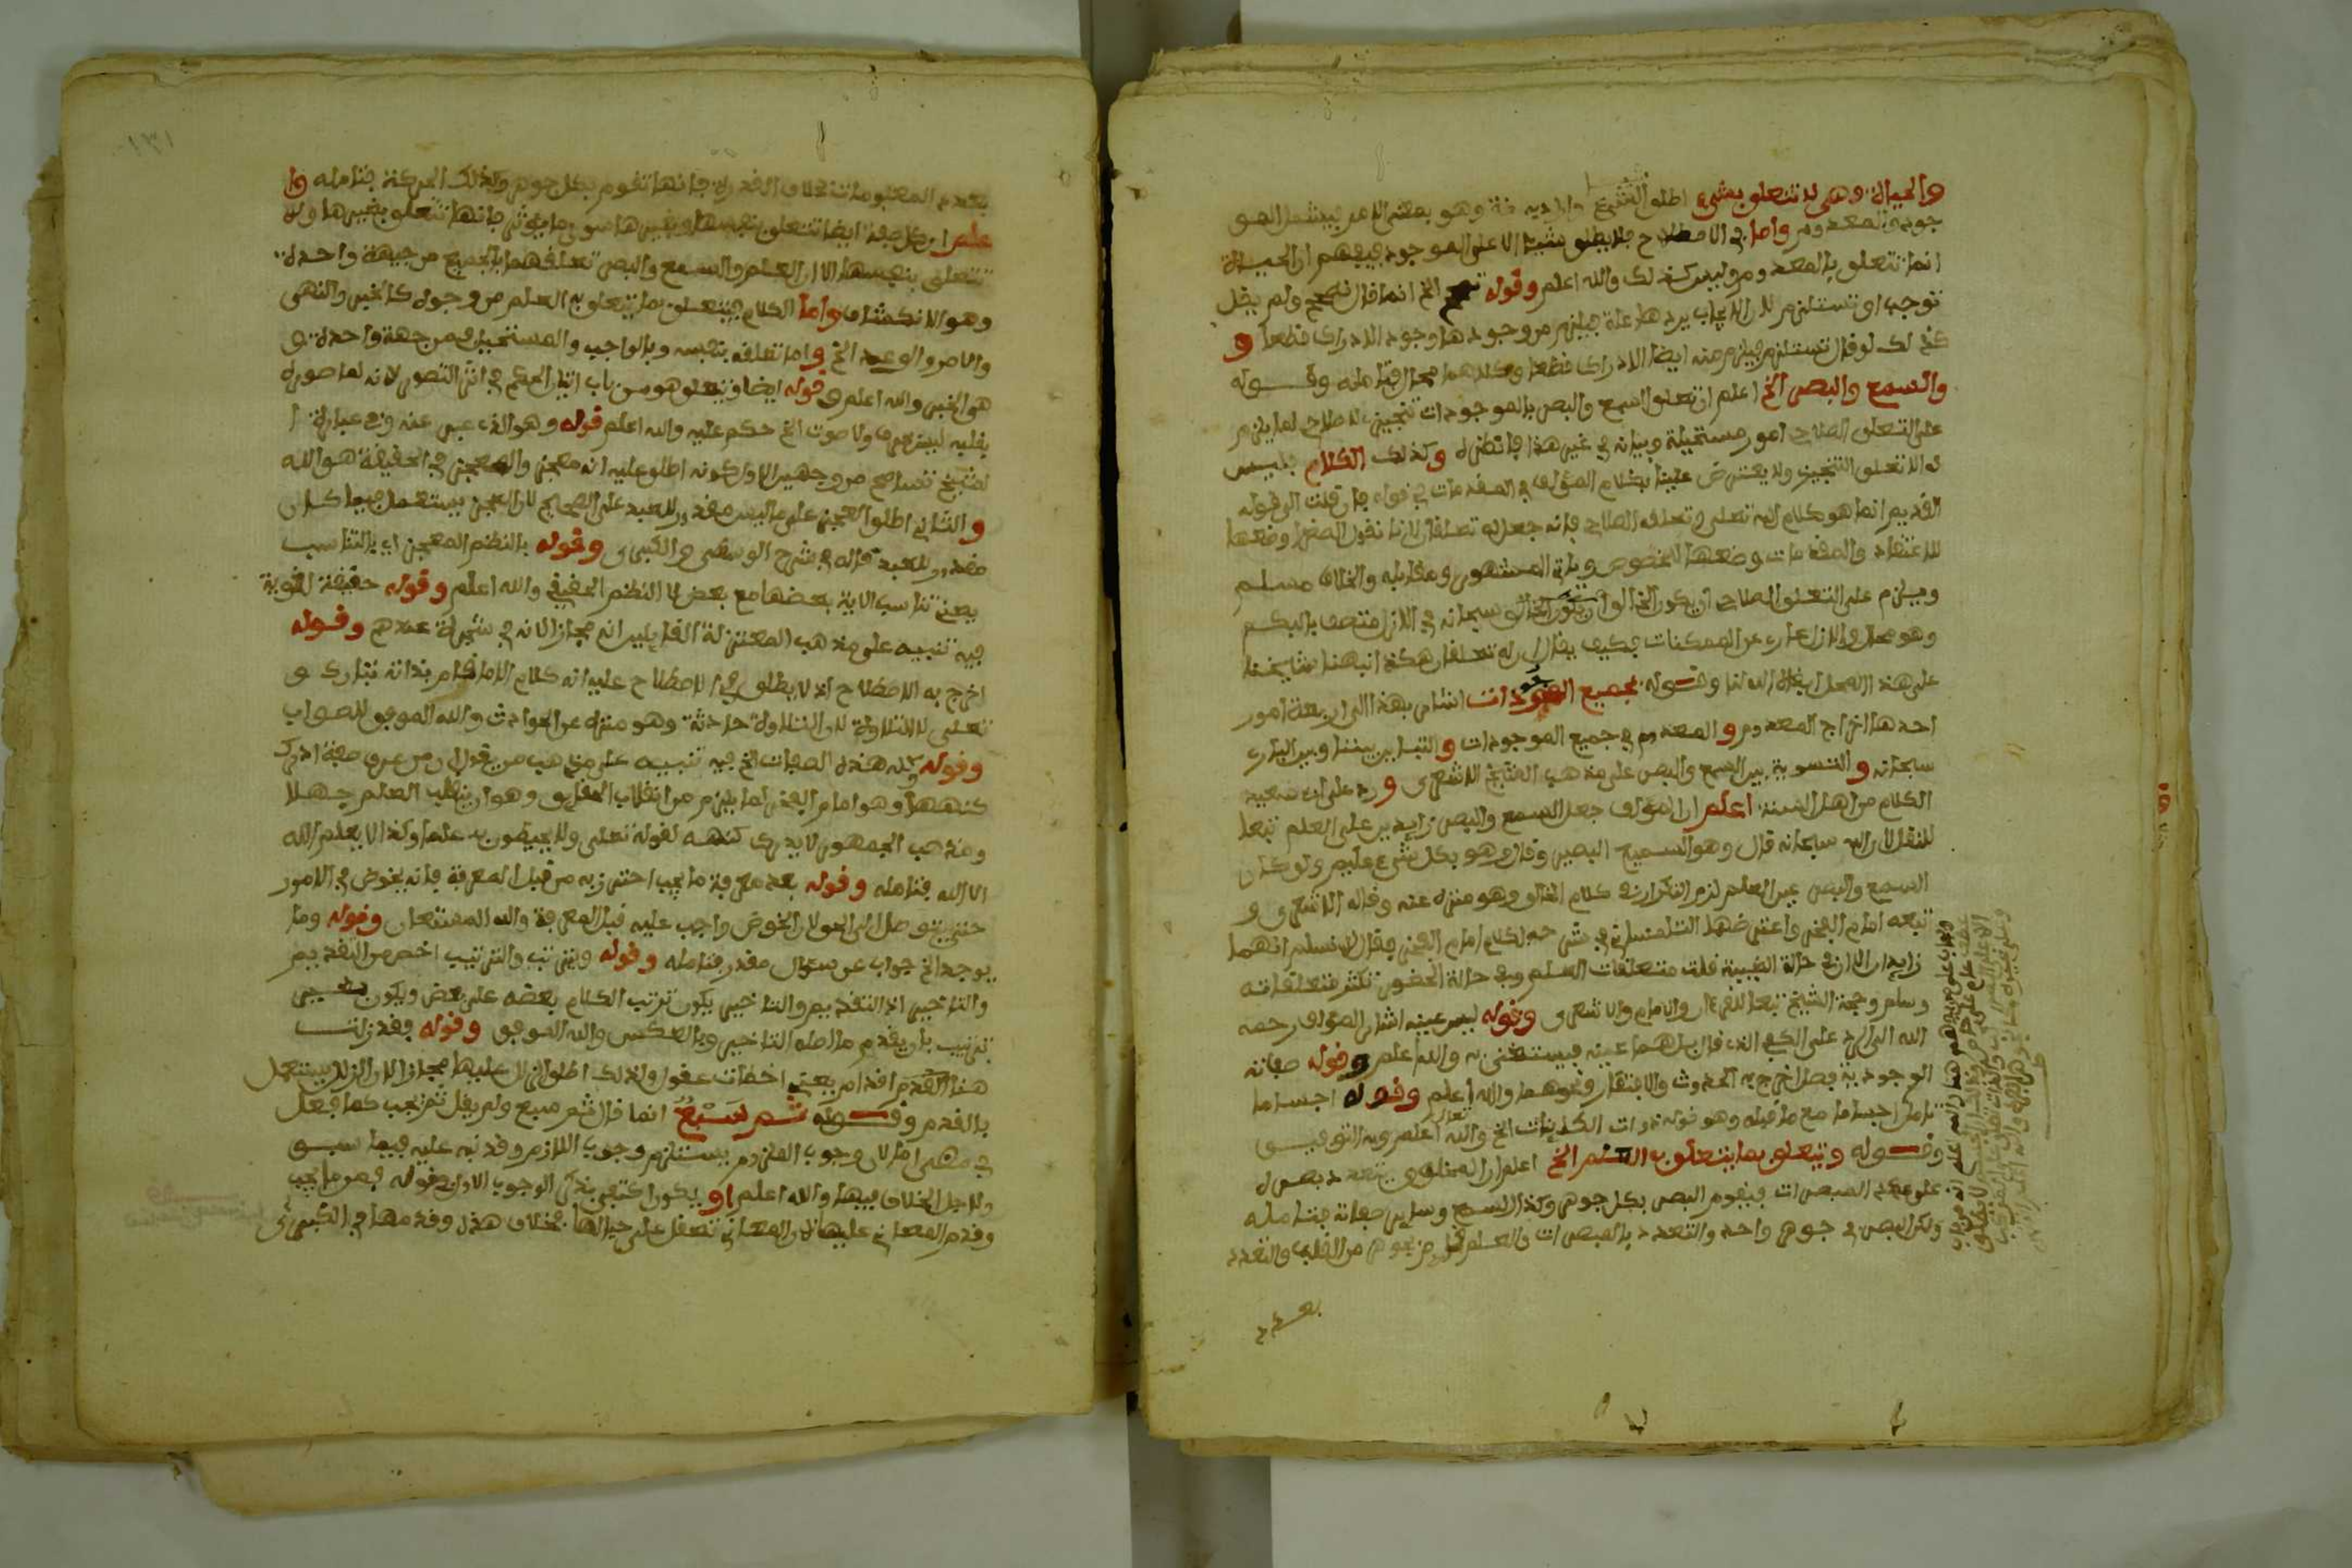 والحياة وهي لا تتعلق بشيء اطلق الشيء واراد به وهو بمعنى الامر ليشمل المو
جود والمعدوم واما في الاصطلاح فلا يطلق شيئا الا على الموجود فيفهم ان الحياة
انما تتعلق بالمعدوم وليس كذلك والله اعلم وقوله تصحح الخ انما قال تصحح ولم يقل
توجب او تستلزم لان الايجاب يردها علة فيلزم من وجودها وجود الادراك قطعا و
كذلك لو قال تستلزم فيلزم منه ايضا الادراك قطعا وكلاهما محال فتامله وقوله
والسمع والبصر الخ اعلم ان تعلق السمع والبصر بالموجودات تنجيزي لا صلاحي لما يلزم
على التعلق الصلاحي امور مستحيلة وبيانه في غير هذا فانظره وكذلك الكلام فليس
له الا تعلق التنجيز ولا يعترض علينا بكلام المؤلف في المقدمات في قوله فان قلت الى قوله
القديم انما هو كلام الله تعلى وتعلقه الصلاحي فانه جعل له تعلقا لانا نقول الصغرى وضعها
للاعتقاد والمقدمات وضعها للخصوص وياتي المشهور ومقابله والخلاف مسلم
ويلزم على التعلق الصلاحي ان يكون سبحانه في الازل متصف بالبكم
وهو محال والازل عار عن الممكنات فكيف يقال ان له تعلقا هكذا نبهنا شايخنا
على هذا المحل ابقاه الله لنا وقوله بجميع الموجودات اشار بهذا الى اربعة امور
احدها اخراج المعدوم والمعدوم في جميع الموجودات والتباين بيننا وبين الباري
سبحانه والتسوية بين السمع والبصر على مذهب الشيخ الاشعري ورد على ابن سعيد
الكلام من اهل السنة اعلم ان المؤلف جعل السمع والبصر زايدين على العلم تبعا
للنقل لان الله سبحانه قال وهو السميع البصير وقال وهو بكل شيء عليم ولو كان
السمع والبصر عين العلم لزم التكرار في كلام الخالق وهو منزه عنه وقاله الاشعري و
تبعه امام الفخر واعترضها التلمساني في شرحه لكلام امام الفخر فقال لا نسلم انهما
زايدان الا ان في حالة الغيبة قلت متعلقات العلم وفي حالة الحضور تكثر متعلقاته
وسلم وحجة الشيخ تبعا للقرءان والامام والاشعري وقوله ليس عينه اشار المؤلف رحمه
الله الى الرد على الكعبي الذي قال بل هما عينه فيستغنى به والله اعلم وقوله صفاته
الوجودية فصل اخرج به الحدوث والافتقار ونحوهما والله اعلم وقوله اجساما
تامل اجساما مع ما قبله وهو قوله ذوات الكاينات الخ والله تعالى اعلم وبه التوفيق
وقوله ويتعلق بما يتعلق به العلم الخ اعلم ان المخلوق يتعدد بصره
على عدد المبصرات فيقوم البصر بكل جوهر وكذا السمع وساير صفاته فتامله
ولكن البصر في جوهر واحد والتعدد بالمبصرات والعلم في جوهر من القلب والتعدد
بعدد
بعدد المعلومات بخلاف القدرة فانها تقوم بكل جوهر وكذلك الحركة فتامله وا
علم ان كل صفة ايضا تتعلق بنفسها وبغيرها سوى ما يوثر فانها تتعلق بغيرها ولا
تتعلق بنفسها الا ان العلم والسمع والبصر تعلقهما بالجميع من جهة واحدة
وهو الانكشاف واما الكلام فيتعلق بما يتعلق به العلم من وجوه كالخبر والنهي
والامر والوعد الخ واما تعلقه بنفسه وبالواجب والمستحيل فمن جهة واحدة و
هو الخبر والله اعلم وقوله ايضا ويتعلق هو من باب اتيان الحكم في اثر التصور لانه لما صوره
بقلبه ليس بحرف ولا صوت الخ حكم عليه والله اعلم وقوله وهو الذي عبر عنه وفي عبارة ا
لشيخ تسامح من وجهين الاول كونه اطلق عليه انه معجز والمعجز في الحقيقة هو الله
والثاني اطلق المعجز على ما ليس مقدور للعبد على الصحيح لان العجز يستعمل فيما كان
مقدور للعبد قاله في شرح الوسطى والكبرى وقوله بالنظم المعجز اي بالتناسب
يعني تناسب الاية بعضها مع بعض لا النظم الحقيقي والله اعلم وقوله حقيقة لغوية
فيه تنبيه على مذهب المعتزلة القايلين انه مجاز لانه في شجرة عندهم وقوله
اخرج به الاصطلاح اذ لا يطلق في الاصطلاح عليه انه كلام الا ما قام بذاته تبارك و
تعلى لا التلاوة لان التلاوة حادثة وهو منزه عن الحوادث والله الموفق للصواب
وقوله وكنه هذه الصفات الخ فيه تنبيه على مذهب من يقول ان من عرف صفة ادرك
كنهها وهو امام الفخر لما يلزم من انقلاب الحقايق وهو ان ينقلب العلم جهلا
ومذهب الجمهور لا يدرى كنهه لقوله تعلى ولا يحيطون به علما وكذا لا يعلم الله
الا الله فتامله وقوله بعد معرفة ما يجب احترز به من قبل المعرفة فانه يخوض في الامور
حتى يتوصل الى الحق لان الخوض واجب عليه قبل المعرفة والله المستعان وقوله وما
يوجد الخ جواب عن سوال مقدر فتامله وقوله ويترتب والترتيب اخص من التقديم
والتاخير اذ التقديم والتاخير يكون ترتب الكلام بعضه على بعض ويكون بغير
ترتيب بان يقدم ما اصله التاخير وبالعكس والله الموفق وقوله فقد زلت
هنا القدم اقدام يعني اخطات عقول وكذلك اطلق الزلل عليها مجازا لان الزلل يستعمل
بالقدم وقوله ثم سبع انما قال ثم سبع ولم يقل ثم يجب كما فعل
في معنى اما لان وجوب الملزوم يستلزم وجوب اللازم وقد نبه عليه فيما سبق
ولاجل الخلاف فيها والله اعلم او يكون اكتفى بذكر الوجوب الاول في قوله فمما يجب
وقدم المعاني عليها لان المعاني تتعقل على حيالها بخلاف هذه وقدمها في الكبرى
١٣١